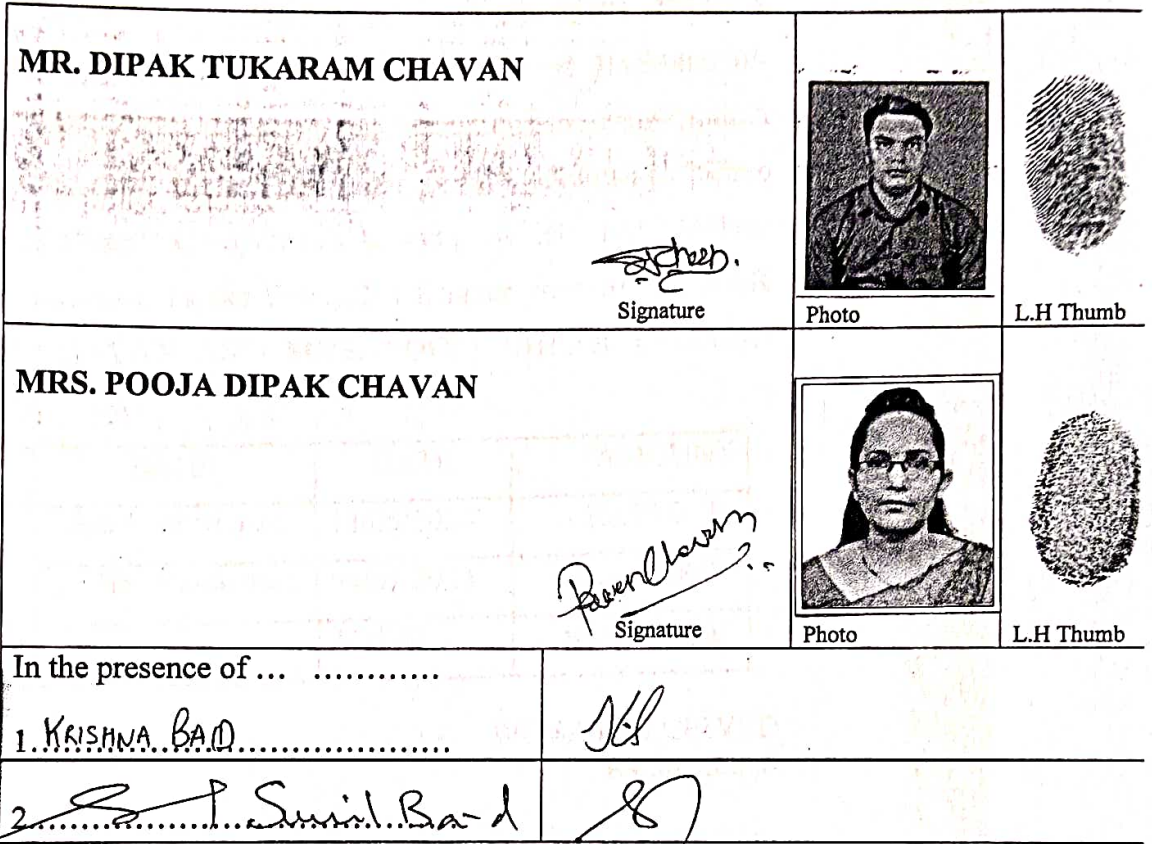 MR. DIPAK TUKARAM CHAVAN
Signature
Photo
L.H Thumb
MRS. POOJA DIPAK CHAVAN
Signature
Photo
L.H Thumb
In the presence of ... ............
1. KRISHNA BAID
2. Sunil Baid